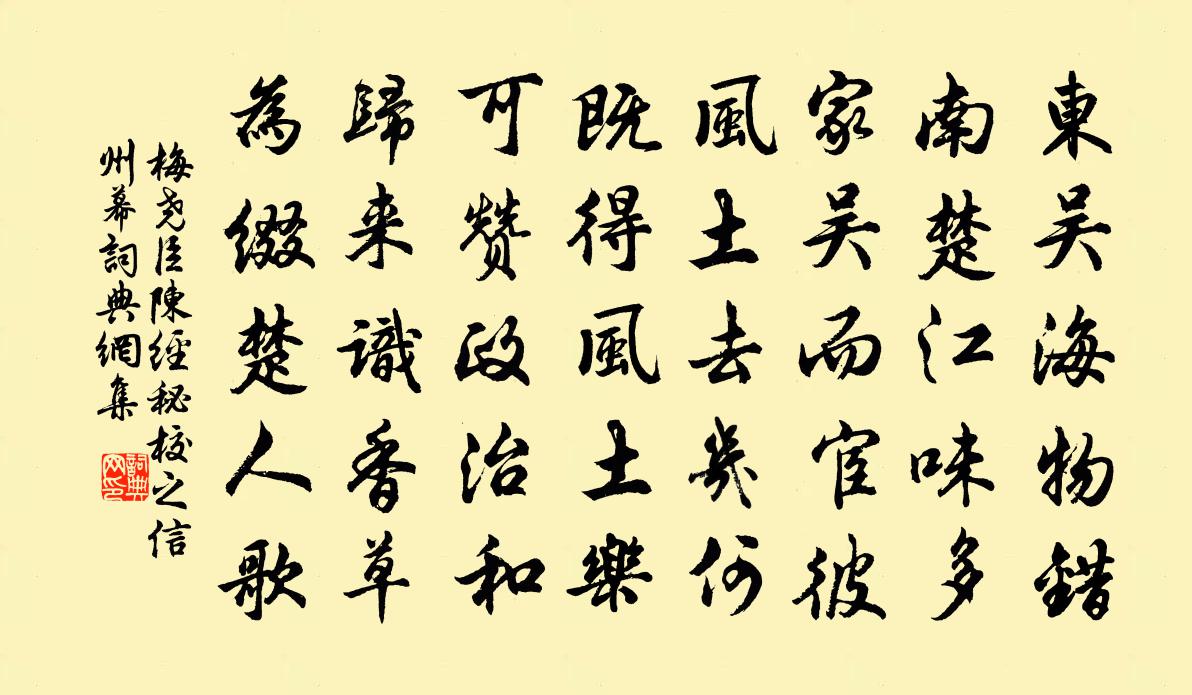 東吴海物錯
南楚江味多
家吴而宦彼
風土去幾何
既得風土樂
可赞政治和
歸来識香草
為綴楚人歌
梅尧臣陳經秘校之信
州幕詞典網集
詞典
网印